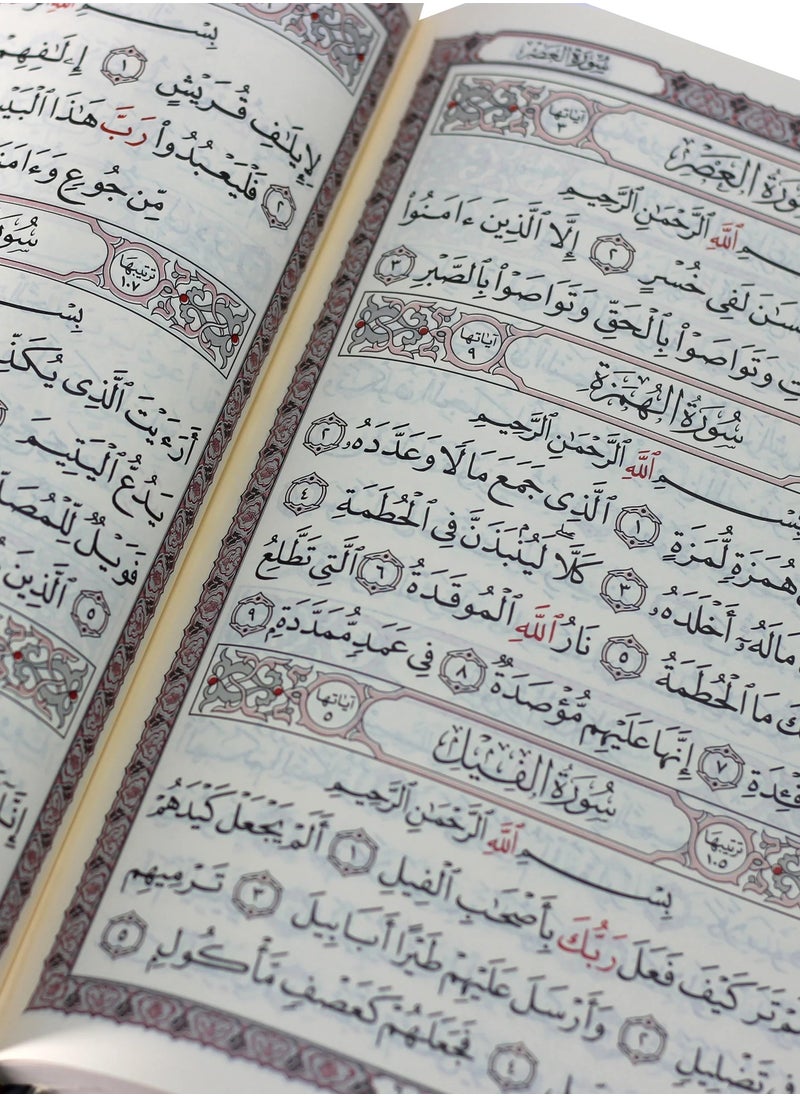 سُورَةُ العَصْرِ
آياتها ٣
سُورَةُ العَصْرِ
ٱللَّهِ ٱلرَّحْمَٰنِ ٱلرَّحِيمِ
لَفِى خُسْرٍ ٢ إِلَّا ٱلَّذِينَ ءَامَنُوا۟
وَتَوَاصَوْا۟ بِٱلْحَقِّ وَتَوَاصَوْا۟ بِٱلصَّبْرِ ٣
آياتها ٩
سُورَةُ الهُمَزَةِ
بِسْمِ ٱللَّهِ ٱلرَّحْمَٰنِ ٱلرَّحِيمِ
هُمَزَةٍ لُّمَزَةٍ ١ ٱلَّذِى جَمَعَ مَالًا وَعَدَّدَهُۥ ٢
مَالَهُۥٓ أَخْلَدَهُۥ ٣ كَلَّا ۖ لَيُنۢبَذَنَّ فِى ٱلْحُطَمَةِ ٤
مَا ٱلْحُطَمَةُ ٥ نَارُ ٱللَّهِ ٱلْمُوقَدَةُ ٦ ٱلَّتِى تَطَّلِعُ
٧ إِنَّهَا عَلَيْهِم مُّؤْصَدَةٌ ٨ فِى عَمَدٍ مُّمَدَّدَةٍۭ ٩
ترتيبها ١٠٥
سُورَةُ الفِيلِ
آياتها ٥
بِسْمِ ٱللَّهِ ٱلرَّحْمَٰنِ ٱلرَّحِيمِ
تَرَ كَيْفَ فَعَلَ رَبُّكَ بِأَصْحَٰبِ ٱلْفِيلِ ١ أَلَمْ يَجْعَلْ كَيْدَهُمْ
فِى تَضْلِيلٍ ٢ وَأَرْسَلَ عَلَيْهِمْ طَيْرًا أَبَابِيلَ ٣ تَرْمِيهِم
٤ فَجَعَلَهُمْ كَعَصْفٍ مَّأْكُولٍۭ ٥
بِسْمِ ٱللَّهِ
لِإِيلَٰفِ قُرَيْشٍ ١ إِۦلَٰفِهِمْ
٢ فَلْيَعْبُدُوا۟ رَبَّ هَٰذَا
مِّن جُوعٍ
ترتيبها ١٠٧
بِسْمِ
أَرَءَيْتَ ٱلَّذِى
يَدُعُّ ٱلْيَتِيمَ
فَوَيْلٌ
٥ ٱلَّذِينَ